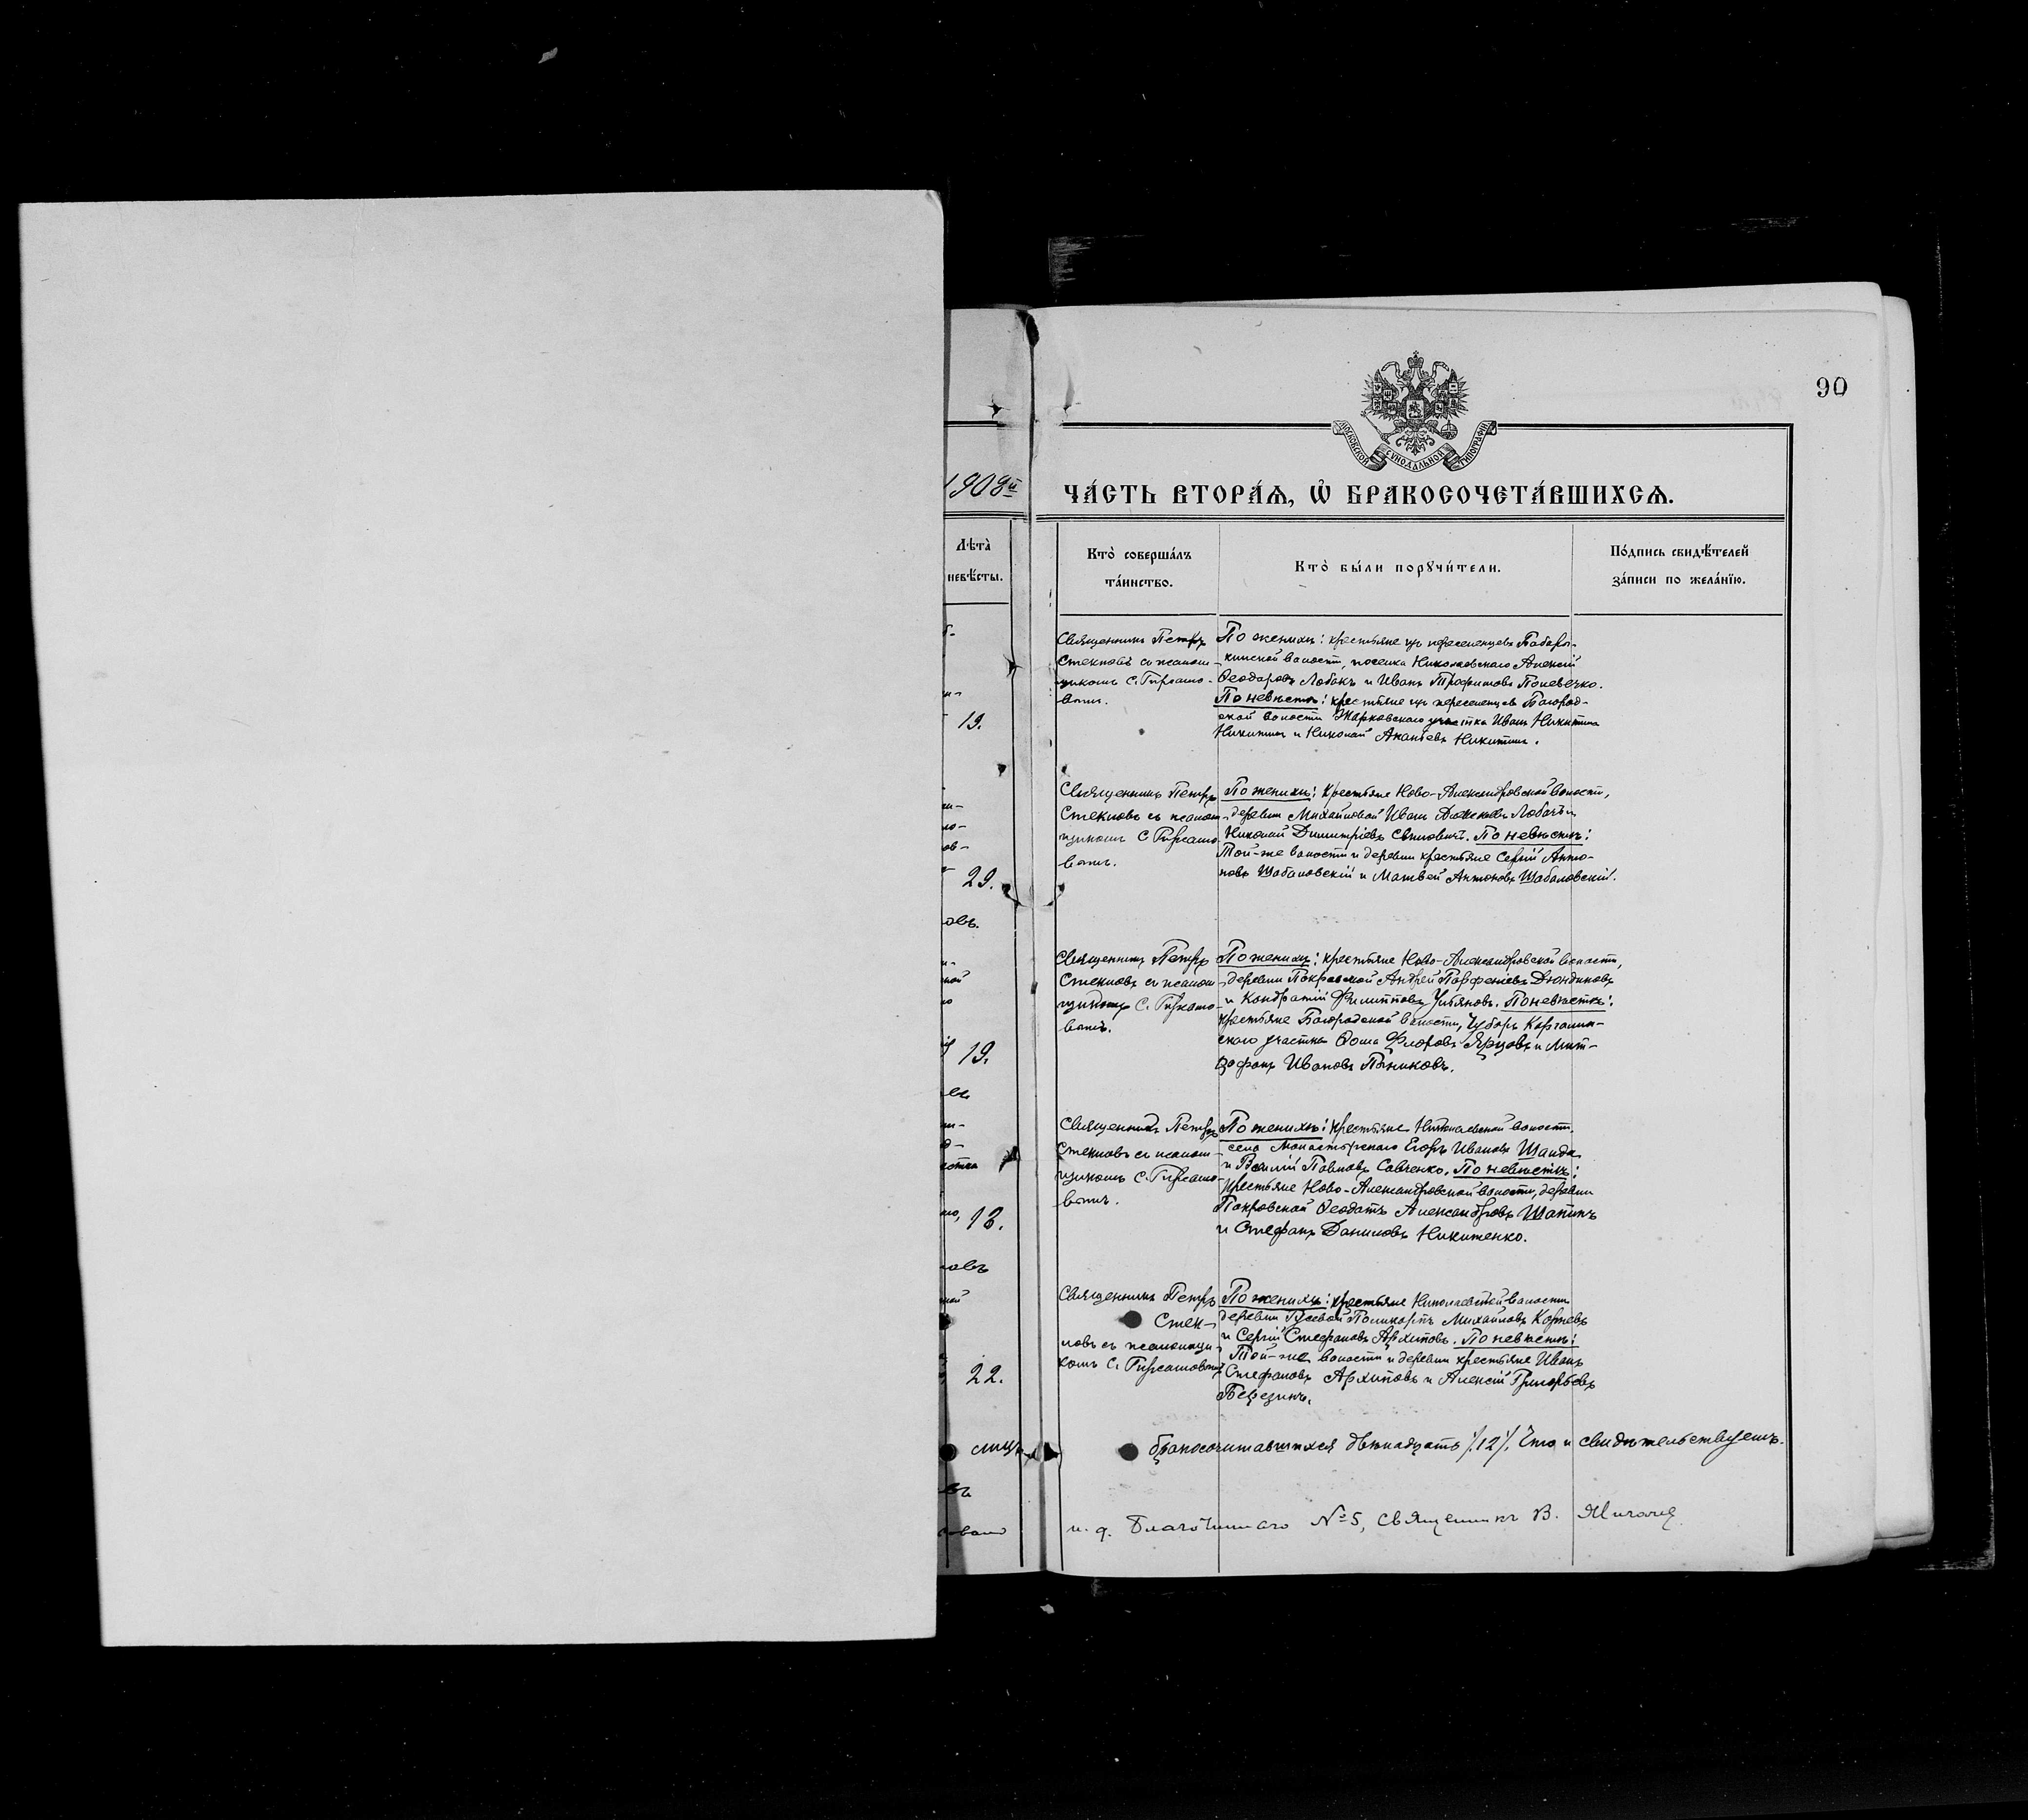 90
МОСКОВСКОЙ СѴНОДАЛЬНОЙ ТИПОГРАФІИ
1908й
ЧА́СТЬ ВТОРА́Ѧ, Ѽ БРАКОСОЧЕТА́ВШИХСѦ.
Лѣта̀
невѣ́сты.
Кто̀ соверша́лъ
та́инство.
Кто̀ бы́ли порꙋчи́тели.
По́дпись свидѣ́телей
за́писи по жела́нїю.
19.
Священникъ Петръ
Стекловъ съ псалом-
щикомъ С.
вымъ.
По женихѣ: крестьяне изъ переселенцевъ
волости, поселка Николаевскаго Алексій
Ѳеодоровъ Лобакъ и Иванъ Трофимовъ
По невѣстѣ: крестьяне изъ переселенцевъ Богород-
ской волости участка Иванъ Никитинъ
Никитинъ и Николай Ананьевъ Никитинъ.
29.
Священникъ Петръ
Стекловъ съ псалом-
щикомъ С
вымъ.
По женихѣ: Крестьяне Ново-Александровской волости,
деревни Михайловой Иванъ
Николай Димитріевъ По невѣстѣ:
Той-же волости и деревни крестьяне Сергій Анто-
новъ Шабаловскій и Матвей Антоновъ Шабаловскій.
овъ.
19.
Священникъ Петръ
Стекловъ съ псалом-
щикомъ С.
вымъ.
По женихѣ: крестьяне Ново-Александровской волости,
деревни Покровской Андрей Парфеніевъ Дюндиковъ
и Кондратій Филипповъ Ульяновъ. По невѣстѣ:
крестьяне Богородской волости,
скаго участка Ѳома Флоровъ Ярцовъ и Мит-
рофанъ Ивановъ
18.
Священникъ Петръ
Стекловъ съ псалом-
щикомъ С.
вымъ.
По женихѣ: крестьяне Николаевской волости
села Монастырскаго Егоръ Ивановъ Шайда
и Василій Павловъ Савченко. По невѣстѣ:
крестьяне Ново-Александровской волости, деревни
Покровской Ѳеодотъ Александровъ
и Стефанъ Даниловъ Никитенко.
22.
Священникъ Петръ
Стек-
ловъ съ псаломщи-
комъ С.
По женихѣ: крестьяне Николаевской волости
деревни Гусевой Поликарпъ Михайловъ Корневъ
и Сергій Стефановъ Архиповъ. По невѣстѣ:
Той-же волости и деревни крестьяне Иванъ
Стефановъ Архиповъ и Алексій Григорьевъ
Березинъ.
лицъ бракосочитавшихся двѣнадцать /.12/. Что и свидѣтельствуемъ.
и. д. Благочиннаго №5, священникъ В.